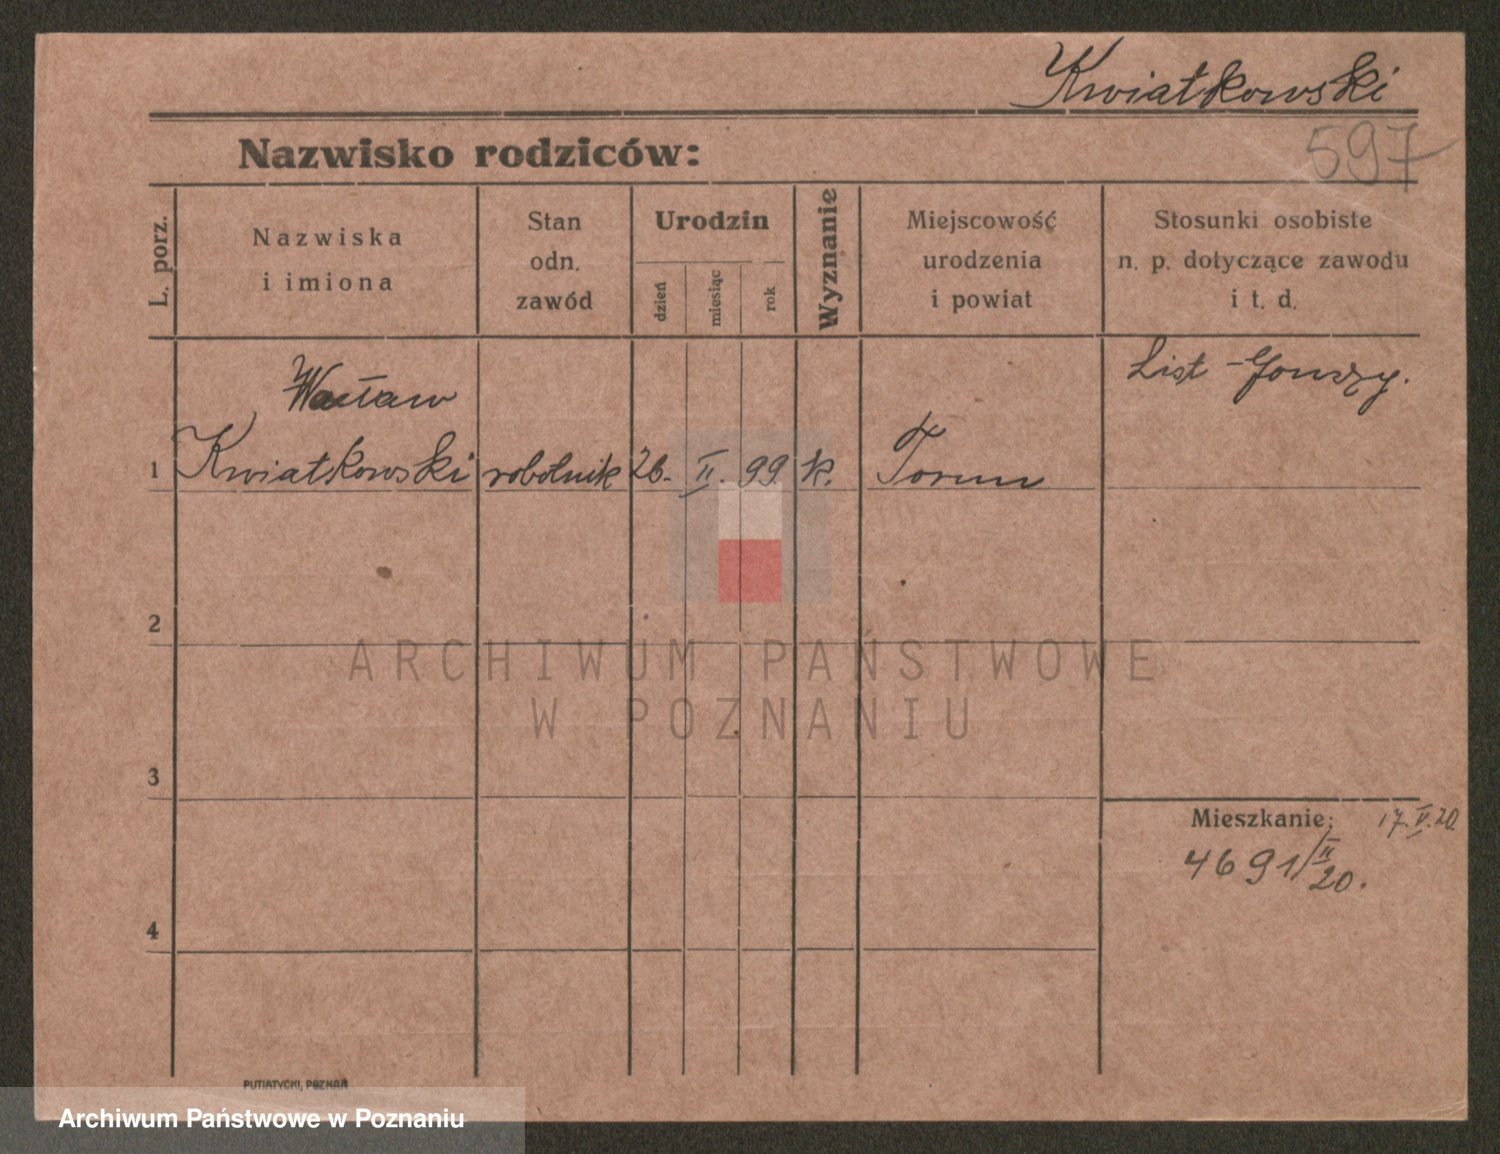 Kwiatkowski
597
Nazwisko rodziców:
L. porz.
Nazwiska
i imiona
Stan
odn.
zawód
Urodzin
dzień
miesiąc
rok
Wyznanie
Miejscowość
urodzenia
i powiat
Stosunki osobiste
n. p. dotyczące zawodu
i t. d.
List - Gończy.
Wacław
1 Kwiatkowski robotnik 26. II. 99 k. Torun
2
ARCHIWUM PAŃSTWOWE
W POZNANIU
3
Mieszkanie: 17.V.20.
4691/II 20.
4
PUTIATYCKI, POZNAŃ
Archiwum Państwowe w Poznaniu